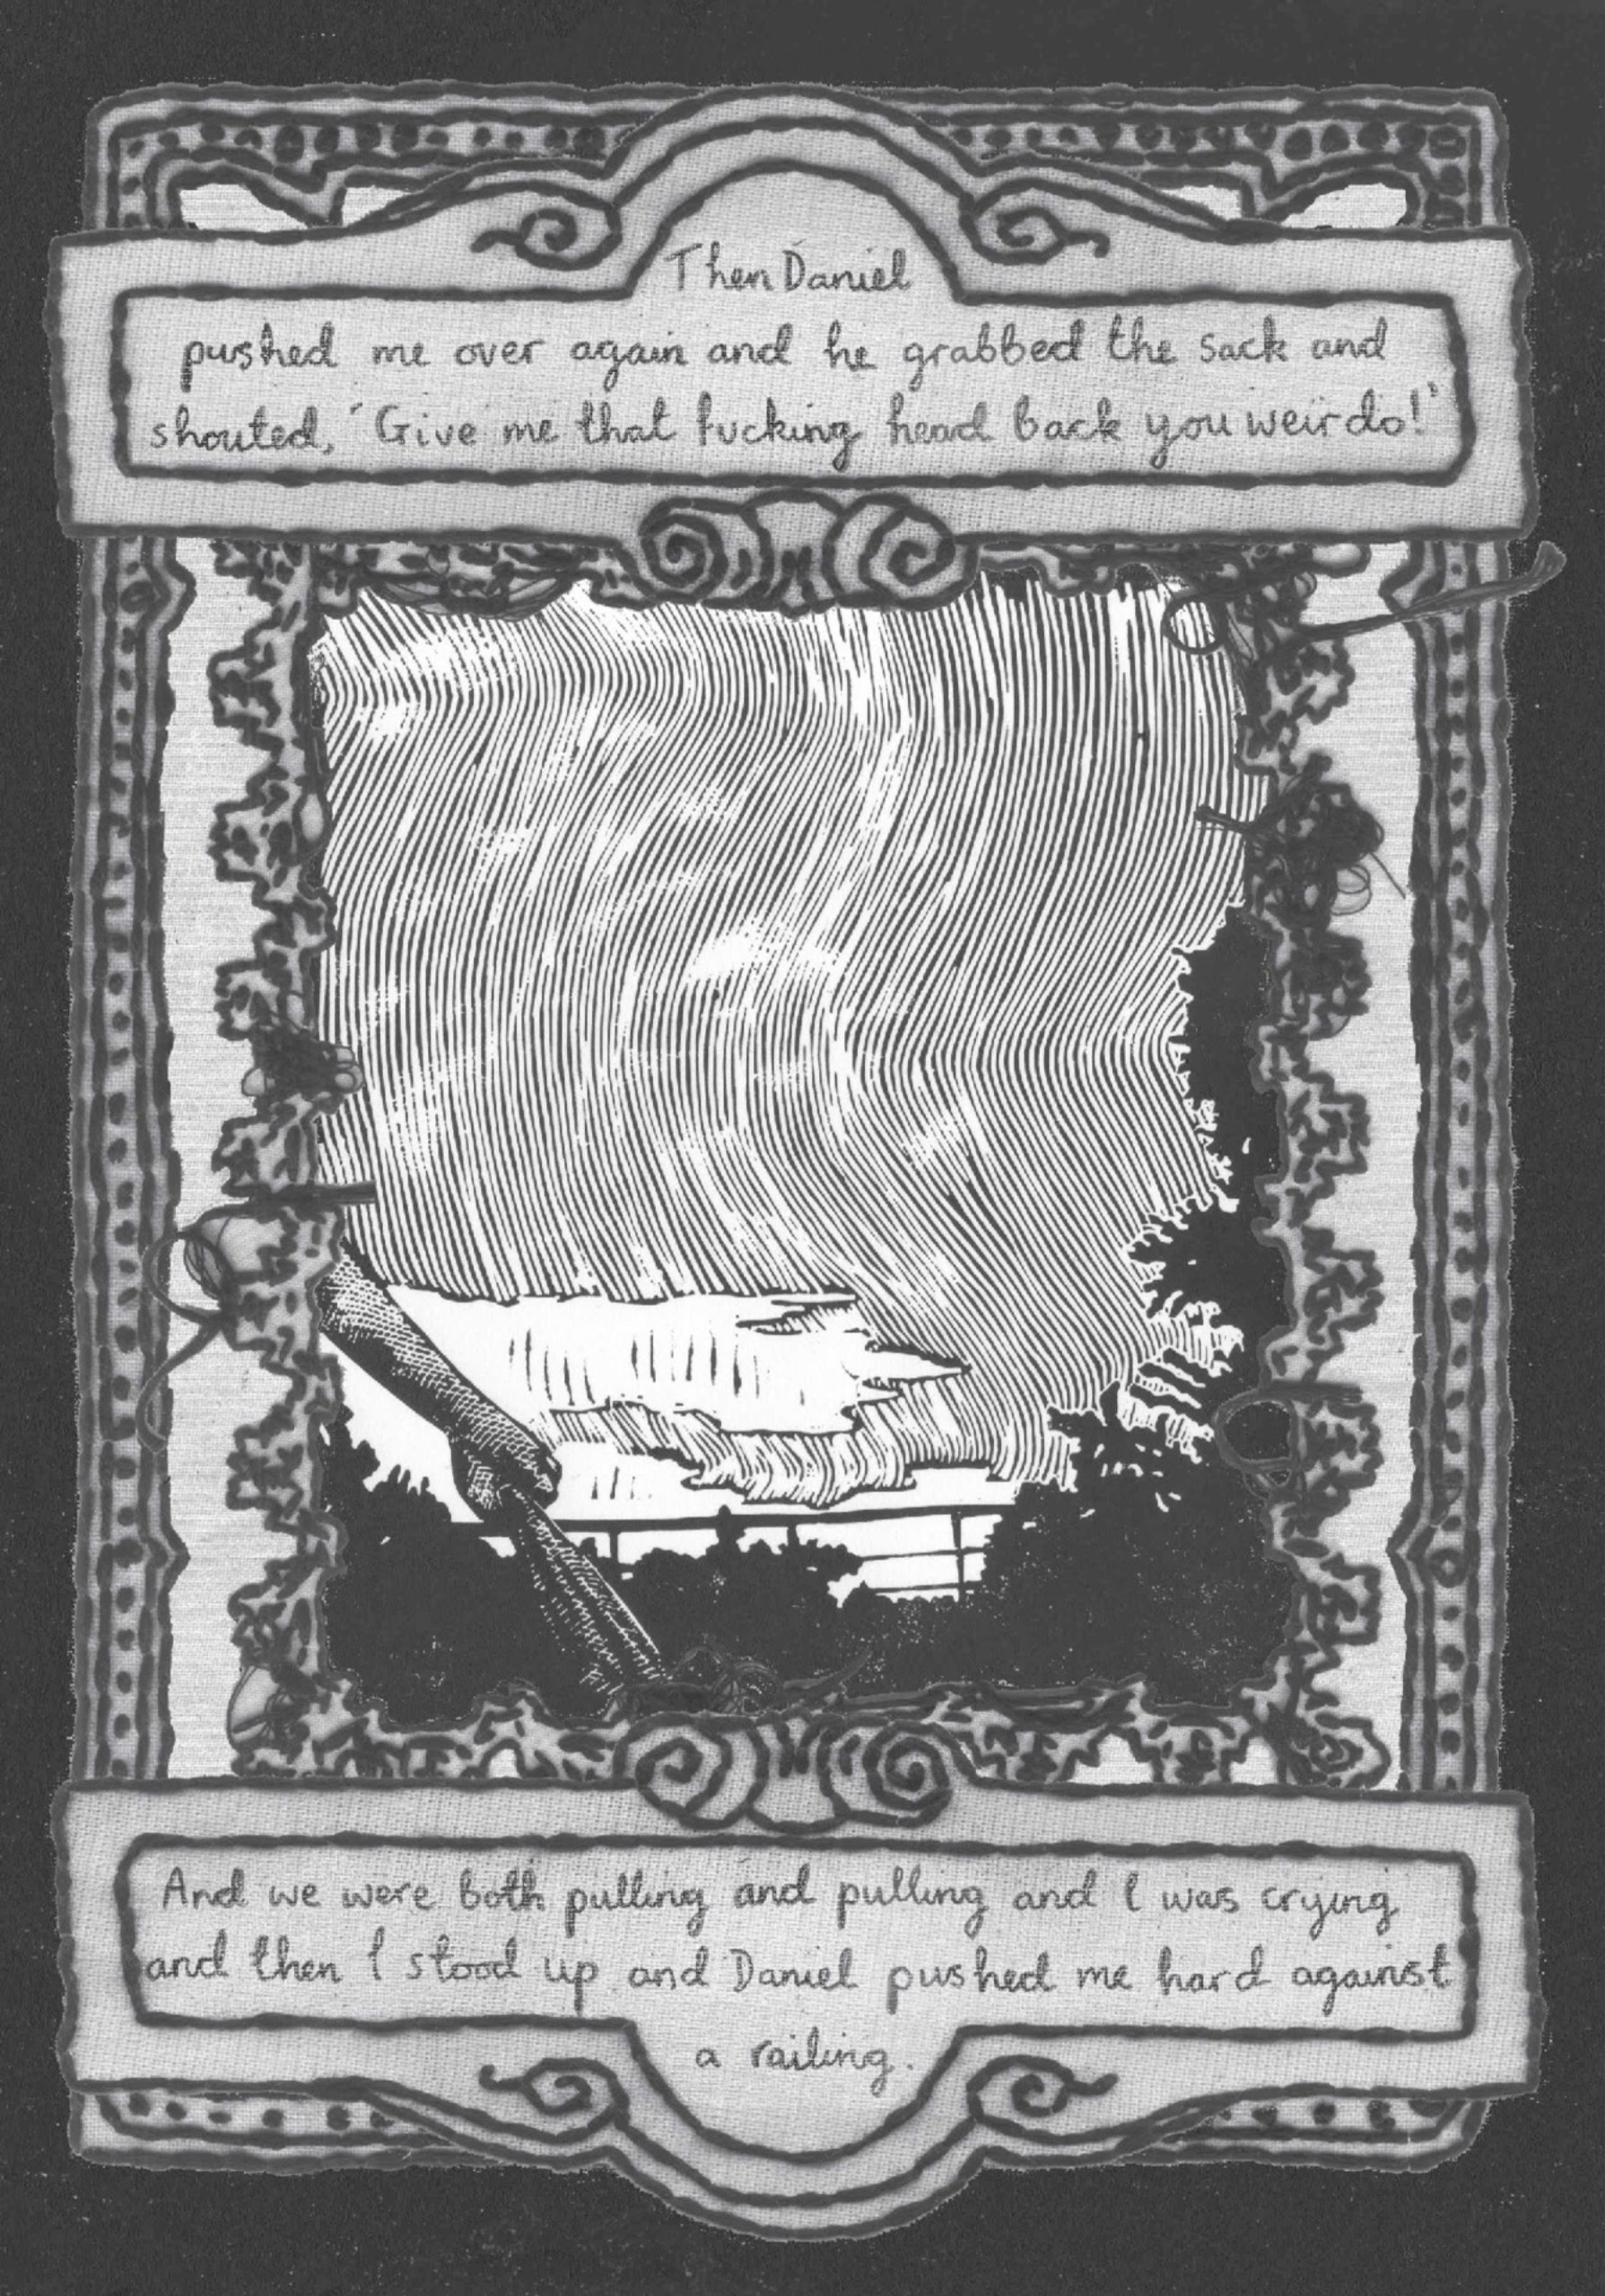 Then Daniel
pushed me over again and he grabbed the sack and
shouted, 'Give me that fucking head back you weirdo!'
And we were both pulling and pulling and I was crying
and then I stood up and Daniel pushed me hard against
a railing.